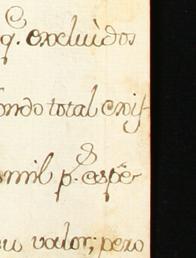 q. excluidos
ondo total exis
mil p.s esper
u valor; pero